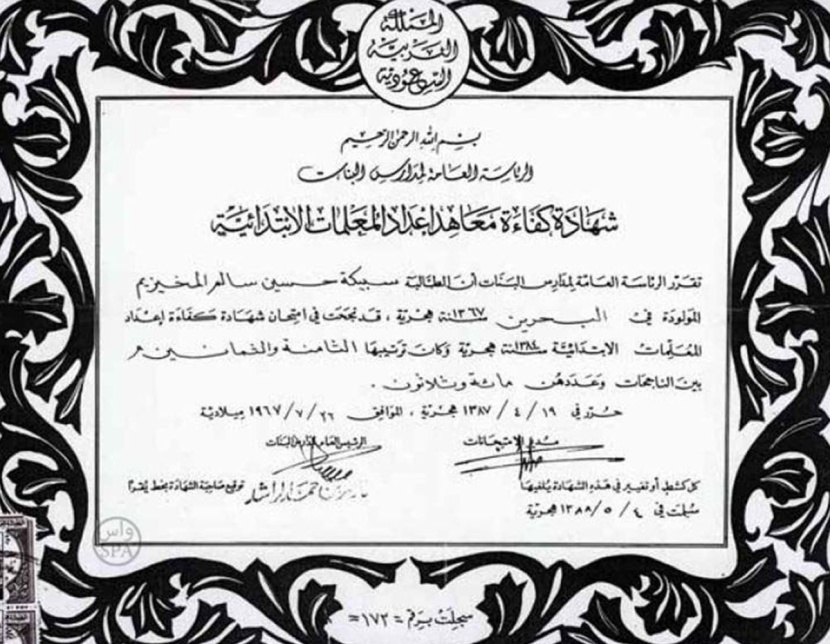 المملكة
العربية
السعودية
بسم الله الرحمن الرحيم
الرئاسة العامة لمدارس البنات
شهادة كفاءة معاهد إعداد المعلمات الابتدائية
تقرر الرئاسة العامة لمدارس البنات أن الطالبة سبيكة حسين سالم المخيزيم
المولودة في البحرين سنة ١٣٦٧ هجرية ، قد نجحت في امتحان شهادة كفاءة إعداد
المعلمات الابتدائية سنة ١٣٨٤ هجرية وكان ترتيبها الثامنة والثمانين
بين الناجحات وعددهن مائة وثلاثون .
حرر في ١٩ / ٤ / ١٣٨٧ هجرية ، الموافق ٢٦ / ٧ / ١٩٦٧ ميلادية
مدير الامتحانات الرئيس العام لمدارس البنات
ناصر بن حمد الراشد
كل كشط أو تغيير في هذه الشهادة يلغيها توقيع صاحبة الشهادة بخط يقرأ
سلمت في ٤ / ٥ / ١٣٨٨ هجرية
واس
SPA
سجلت برقم = ١٧٢ =